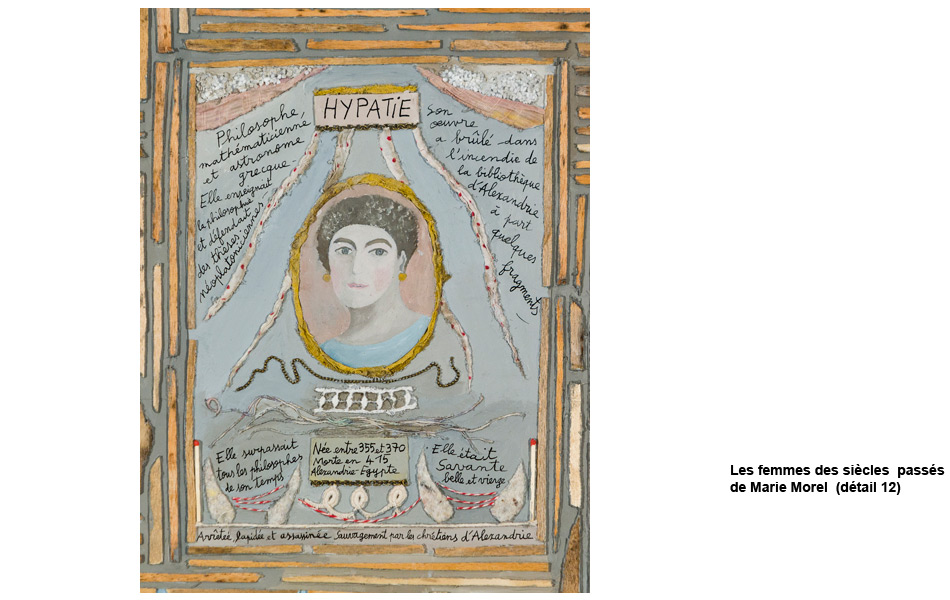 HYPATIE
Philosophe,
mathématicienne
et astronome
grecque.
Elle enseignait
la philosophie
et défendait
des thèses
néoplatoniciennes
Son
œuvre
a brûlé dans
l'incendie de
la bibliothèque
d'Alexandrie
à part
quelques
fragments
Elle surpassait
tous les philosophes
de son temps
Née entre 355 et 370
Morte en 415
Alexandrie-Egypte
Elle était
Savante
belle et vierge
Arrêtée lapidée et assassinée sauvagement par les chrétiens d'Alexandrie
Les femmes des siècles passés
de Marie Morel (détail 12)